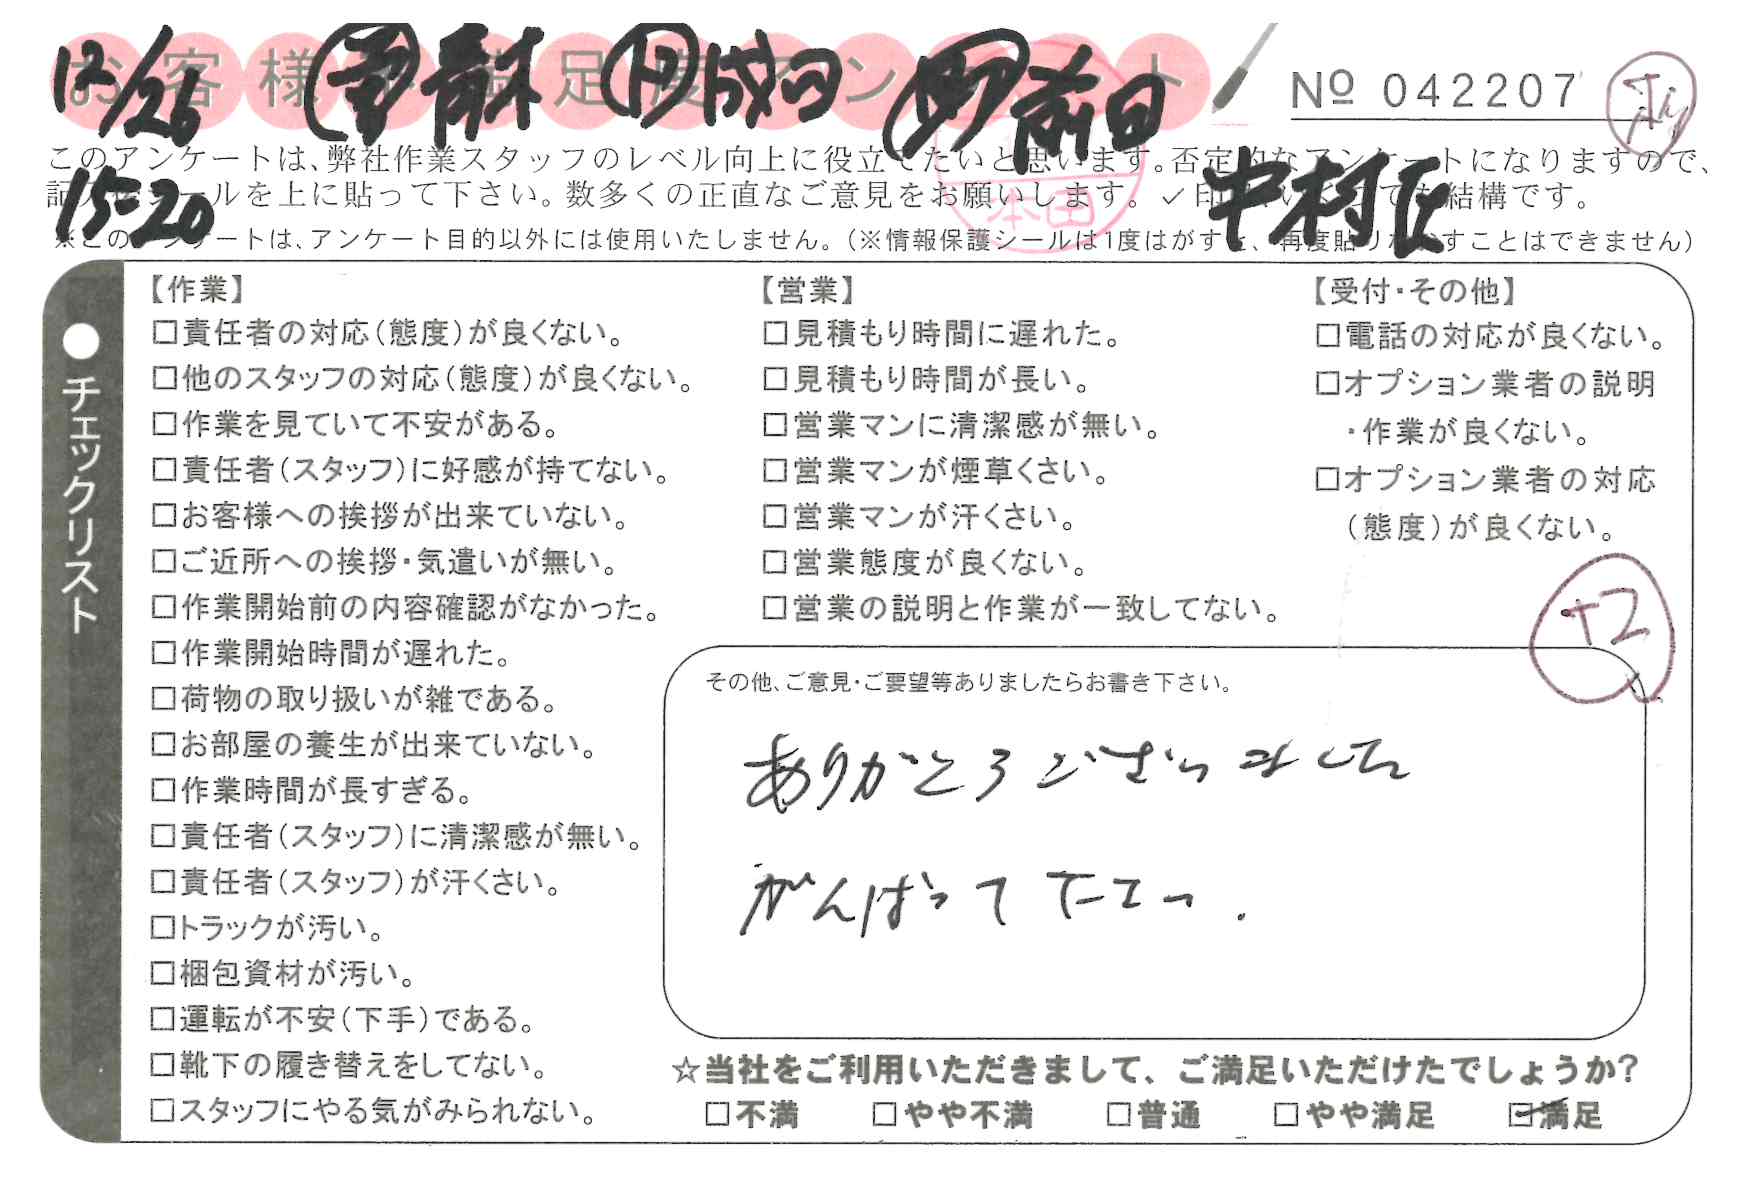 お客様不満足度アンケート
12/26 青木 成田 前田
No 042207
このアンケートは、弊社作業スタッフのレベル向上に役立てたいと思います。否定的なアンケートになりますので、
15-20 シールを上に貼って下さい。数多くの正直なご意見をお願いします。✓印 結構です。
中村 本田
※このアンケートは、アンケート目的以外には使用いたしません。(※情報保護シールは1度はがすと、再度貼りなおすことはできません)
●チェックリスト
【作業】
□責任者の対応(態度)が良くない。
□他のスタッフの対応(態度)が良くない。
□作業を見ていて不安がある。
□責任者(スタッフ)に好感が持てない。
□お客様への挨拶が出来ていない。
□ご近所への挨拶・気遣いが無い。
□作業開始前の内容確認がなかった。
□作業開始時間が遅れた。
□荷物の取り扱いが雑である。
□お部屋の養生が出来ていない。
□作業時間が長すぎる。
□責任者(スタッフ)に清潔感が無い。
□責任者(スタッフ)が汗くさい。
□トラックが汚い。
□梱包資材が汚い。
□運転が不安(下手)である。
□靴下の履き替えをしてない。
□スタッフにやる気がみられない。
【営業】
□見積もり時間に遅れた。
□見積もり時間が長い。
□営業マンに清潔感が無い。
□営業マンが煙草くさい。
□営業マンが汗くさい。
□営業態度が良くない。
□営業の説明と作業が一致してない。
【受付・その他】
□電話の対応が良くない。
□オプション業者の説明
・作業が良くない。
□オプション業者の対応
(態度)が良くない。
+2
その他、ご意見・ご要望等ありましたらお書き下さい。
ありがとうございました
がんばって下さい.
☆当社をご利用いただきまして、ご満足いただけたでしょうか?
□不満 □やや不満 □普通 □やや満足 ☑満足